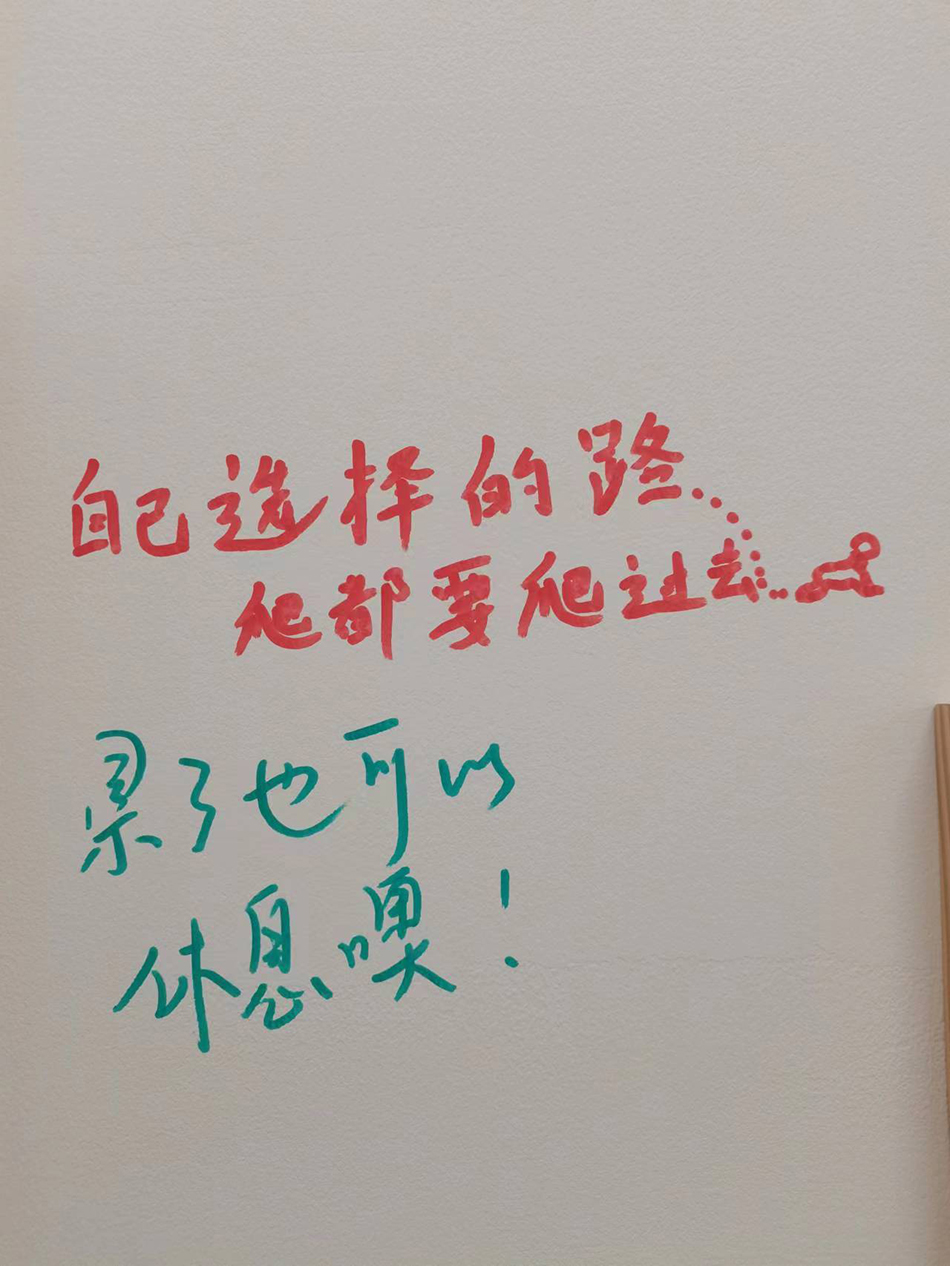 自己选择的路
爬都要爬过去
累了也可以
休息噢！